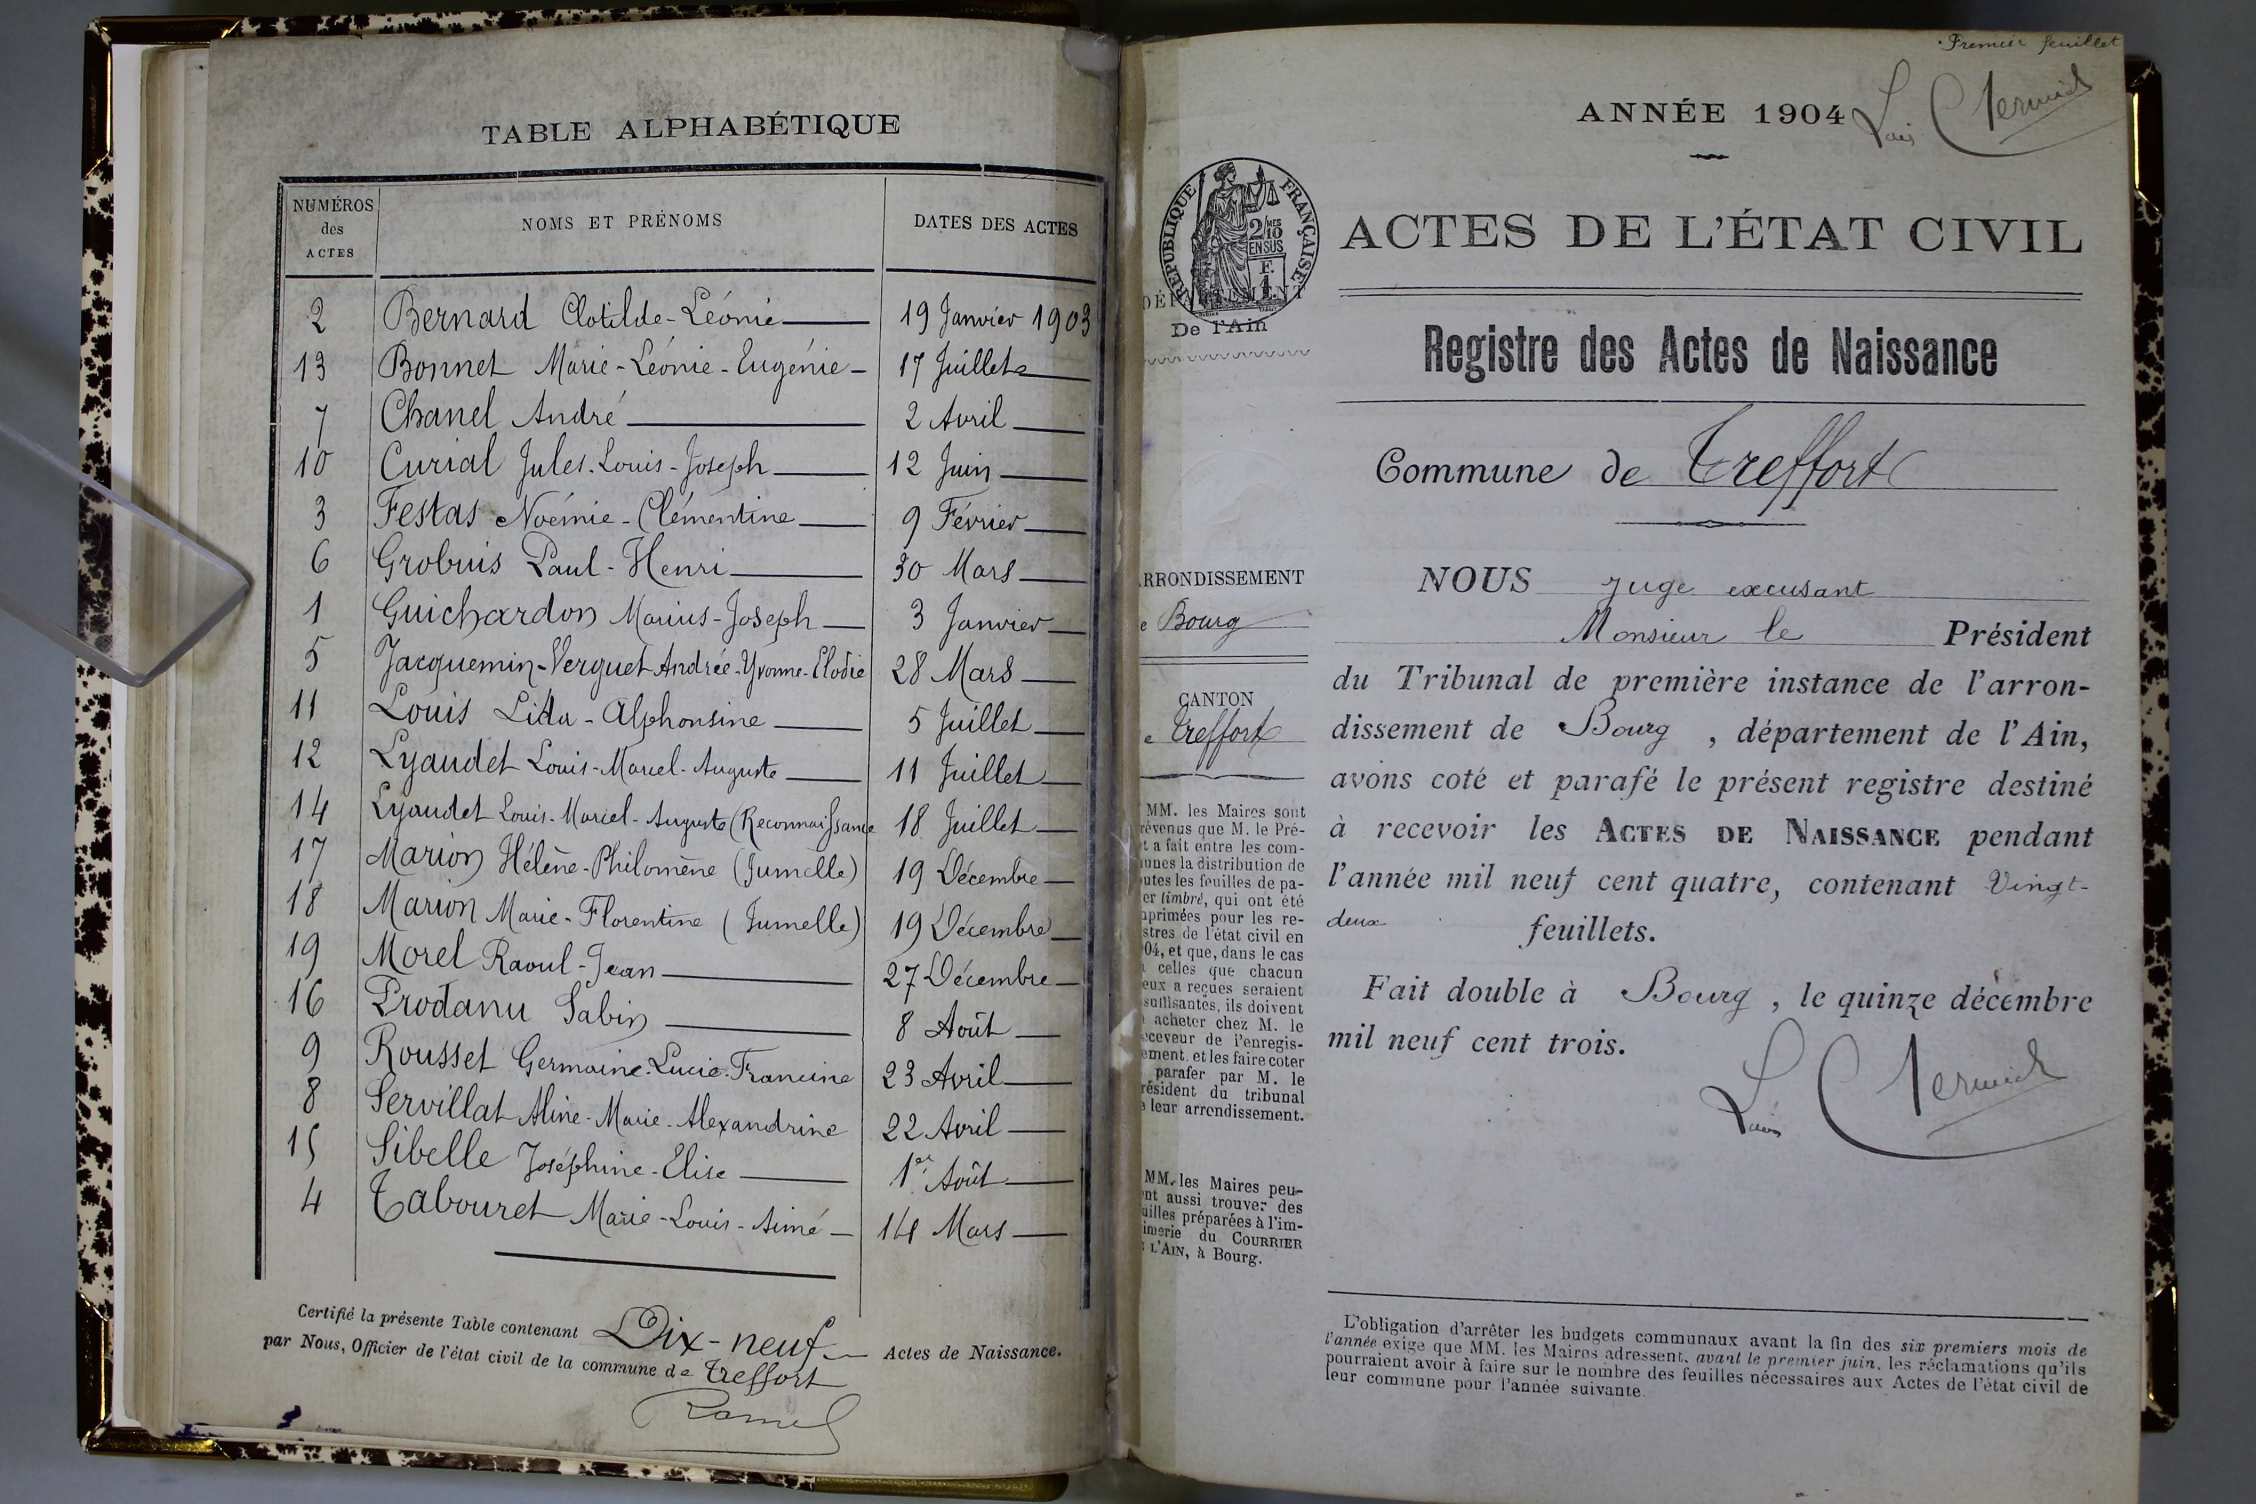 TABLE ALPHABÉTIQUE
NUMÉROS des ACTES NOMS ET PRÉNOMS DATES DES ACTES
2 Bernard Clotilde-Léonie 19 Janvier 1903
13 Bonnet Marie-Léonie-Eugénie 17 Juillet
7 Chanel André 2 Avril
10 Curial Jules-Louis-Joseph 12 Juin
3 Festas Noémie-Clémentine 9 Février
6 Grobuis Paul-Henri 30 Mars
1 Guichardon Marius-Joseph 3 Janvier
5 Jacquemin-Verguet Andrée-Yvonne-Elodie 28 Mars
11 Louis Lida-Alphonsine 5 Juillet
12 Lyaudet Louis-Marcel-Auguste 11 Juillet
14 Lyaudet Louis-Marcel-Auguste (Reconnaissance 18 Juillet
17 Marion Hélène-Philomène (Jumelle) 19 Décembre
18 Marion Marie-Florentine (Jumelle) 19 Décembre
19 Morel Raoul-Jean 27 Décembre
16 Prodanu Sabin 8 Août
9 Rousset Germaine-Lucie-Francine 23 Avril
8 Servillat Aline-Marie-Alexandrine 22 Avril
15 Sibelle Joséphine-Elise 1er Août
4 Tabouret Marie-Louis-Aimé 14 Mars
Certifié la présente Table contenant Dix-neuf Actes de Naissance.
par Nous, Officier de l'état civil de la commune de Treffort
Premier feuillet
ANNÉE 1904
RÉPUBLIQUE FRANÇAISE
2/10 MES EN SUS
F. 1
DÉPARTEMENT
De l'Ain
ACTES DE L'ÉTAT CIVIL
Registre des Actes de Naissance
Commune de Treffort
RRONDISSEMENT
e Bourg
CANTON
e Treffort
MM. les Maires sont
révenus que M. le Pré-
t a fait entre les com-
unes la distribution de
utes les feuilles de pa-
er timbré, qui ont été
primées pour les re-
stres de l'état civil en
04, et que, dans le cas
celles que chacun
eux a reçues seraient
suffisantes, ils doivent
acheter chez M. le
eceveur de l'enregis-
ement, et les faire coter
parafer par M. le
résident du tribunal
e leur arrondissement.
MM. les Maires peu-
nt aussi trouver des
uilles préparées à l'im-
imerie du COURRIER
L'AIN, à Bourg.
NOUS Juge excusant
Monsieur le Président
du Tribunal de première instance de l'arron-
dissement de Bourg, département de l'Ain,
avons coté et parafé le présent registre destiné
à recevoir les ACTES DE NAISSANCE pendant
l'année mil neuf cent quatre, contenant Vingt-
deux feuillets.
Fait double à Bourg, le quinze décembre
mil neuf cent trois.
L'obligation d'arrêter les budgets communaux avant la fin des six premiers mois de
l'année exige que MM. les Maires adressent, avant le premier juin, les réclamations qu'ils
pourraient avoir à faire sur le nombre des feuilles nécessaires aux Actes de l'état civil de
leur commune pour l'année suivante.